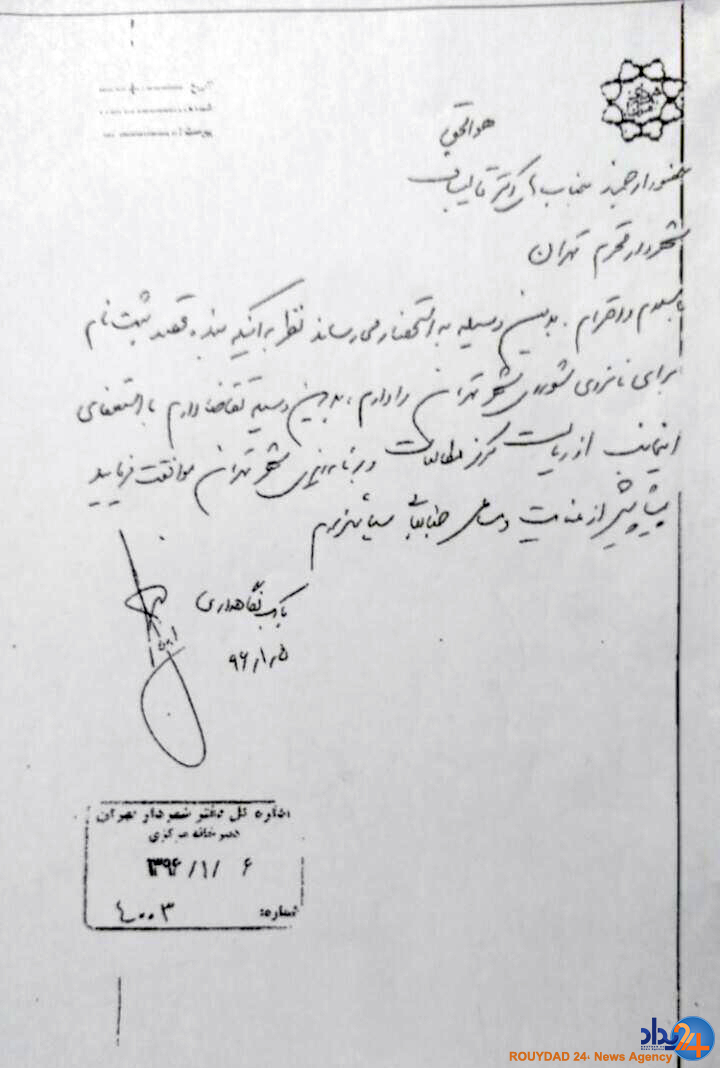 هوالحق
حضور ارجمند جناب آقای دکتر قالیباف
شهردار محترم تهران
با سلام و احترام، بدین وسیله به استحضار می رساند نظر به اینکه بنده قصد ثبت نام
برای نامزدی شورای شهر تهران را دارم، بدین وسیله تقاضا دارم با استعفای
اینجانب از ریاست مرکز مطالعات و برنامه ریزی شهر تهران موافقت فرمایید
پیشاپیش از عنایت و مساعی جنابعالی سپاسگزارم
بابک نگاهداری
۹۶/۱/۵
اداره کل دفتر شهردار تهران
دبیرخانه مرکزی
۱۳۹۶/۱/۶
شماره: ۴۰۰۳
رویداد 24
ROUYDAD 24- News Agency